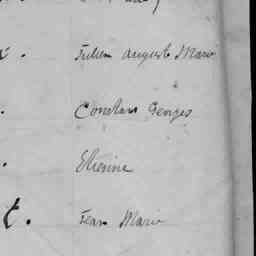 Julien Auguste Marie
Constant Georges
Etienne
t. Jean Marie